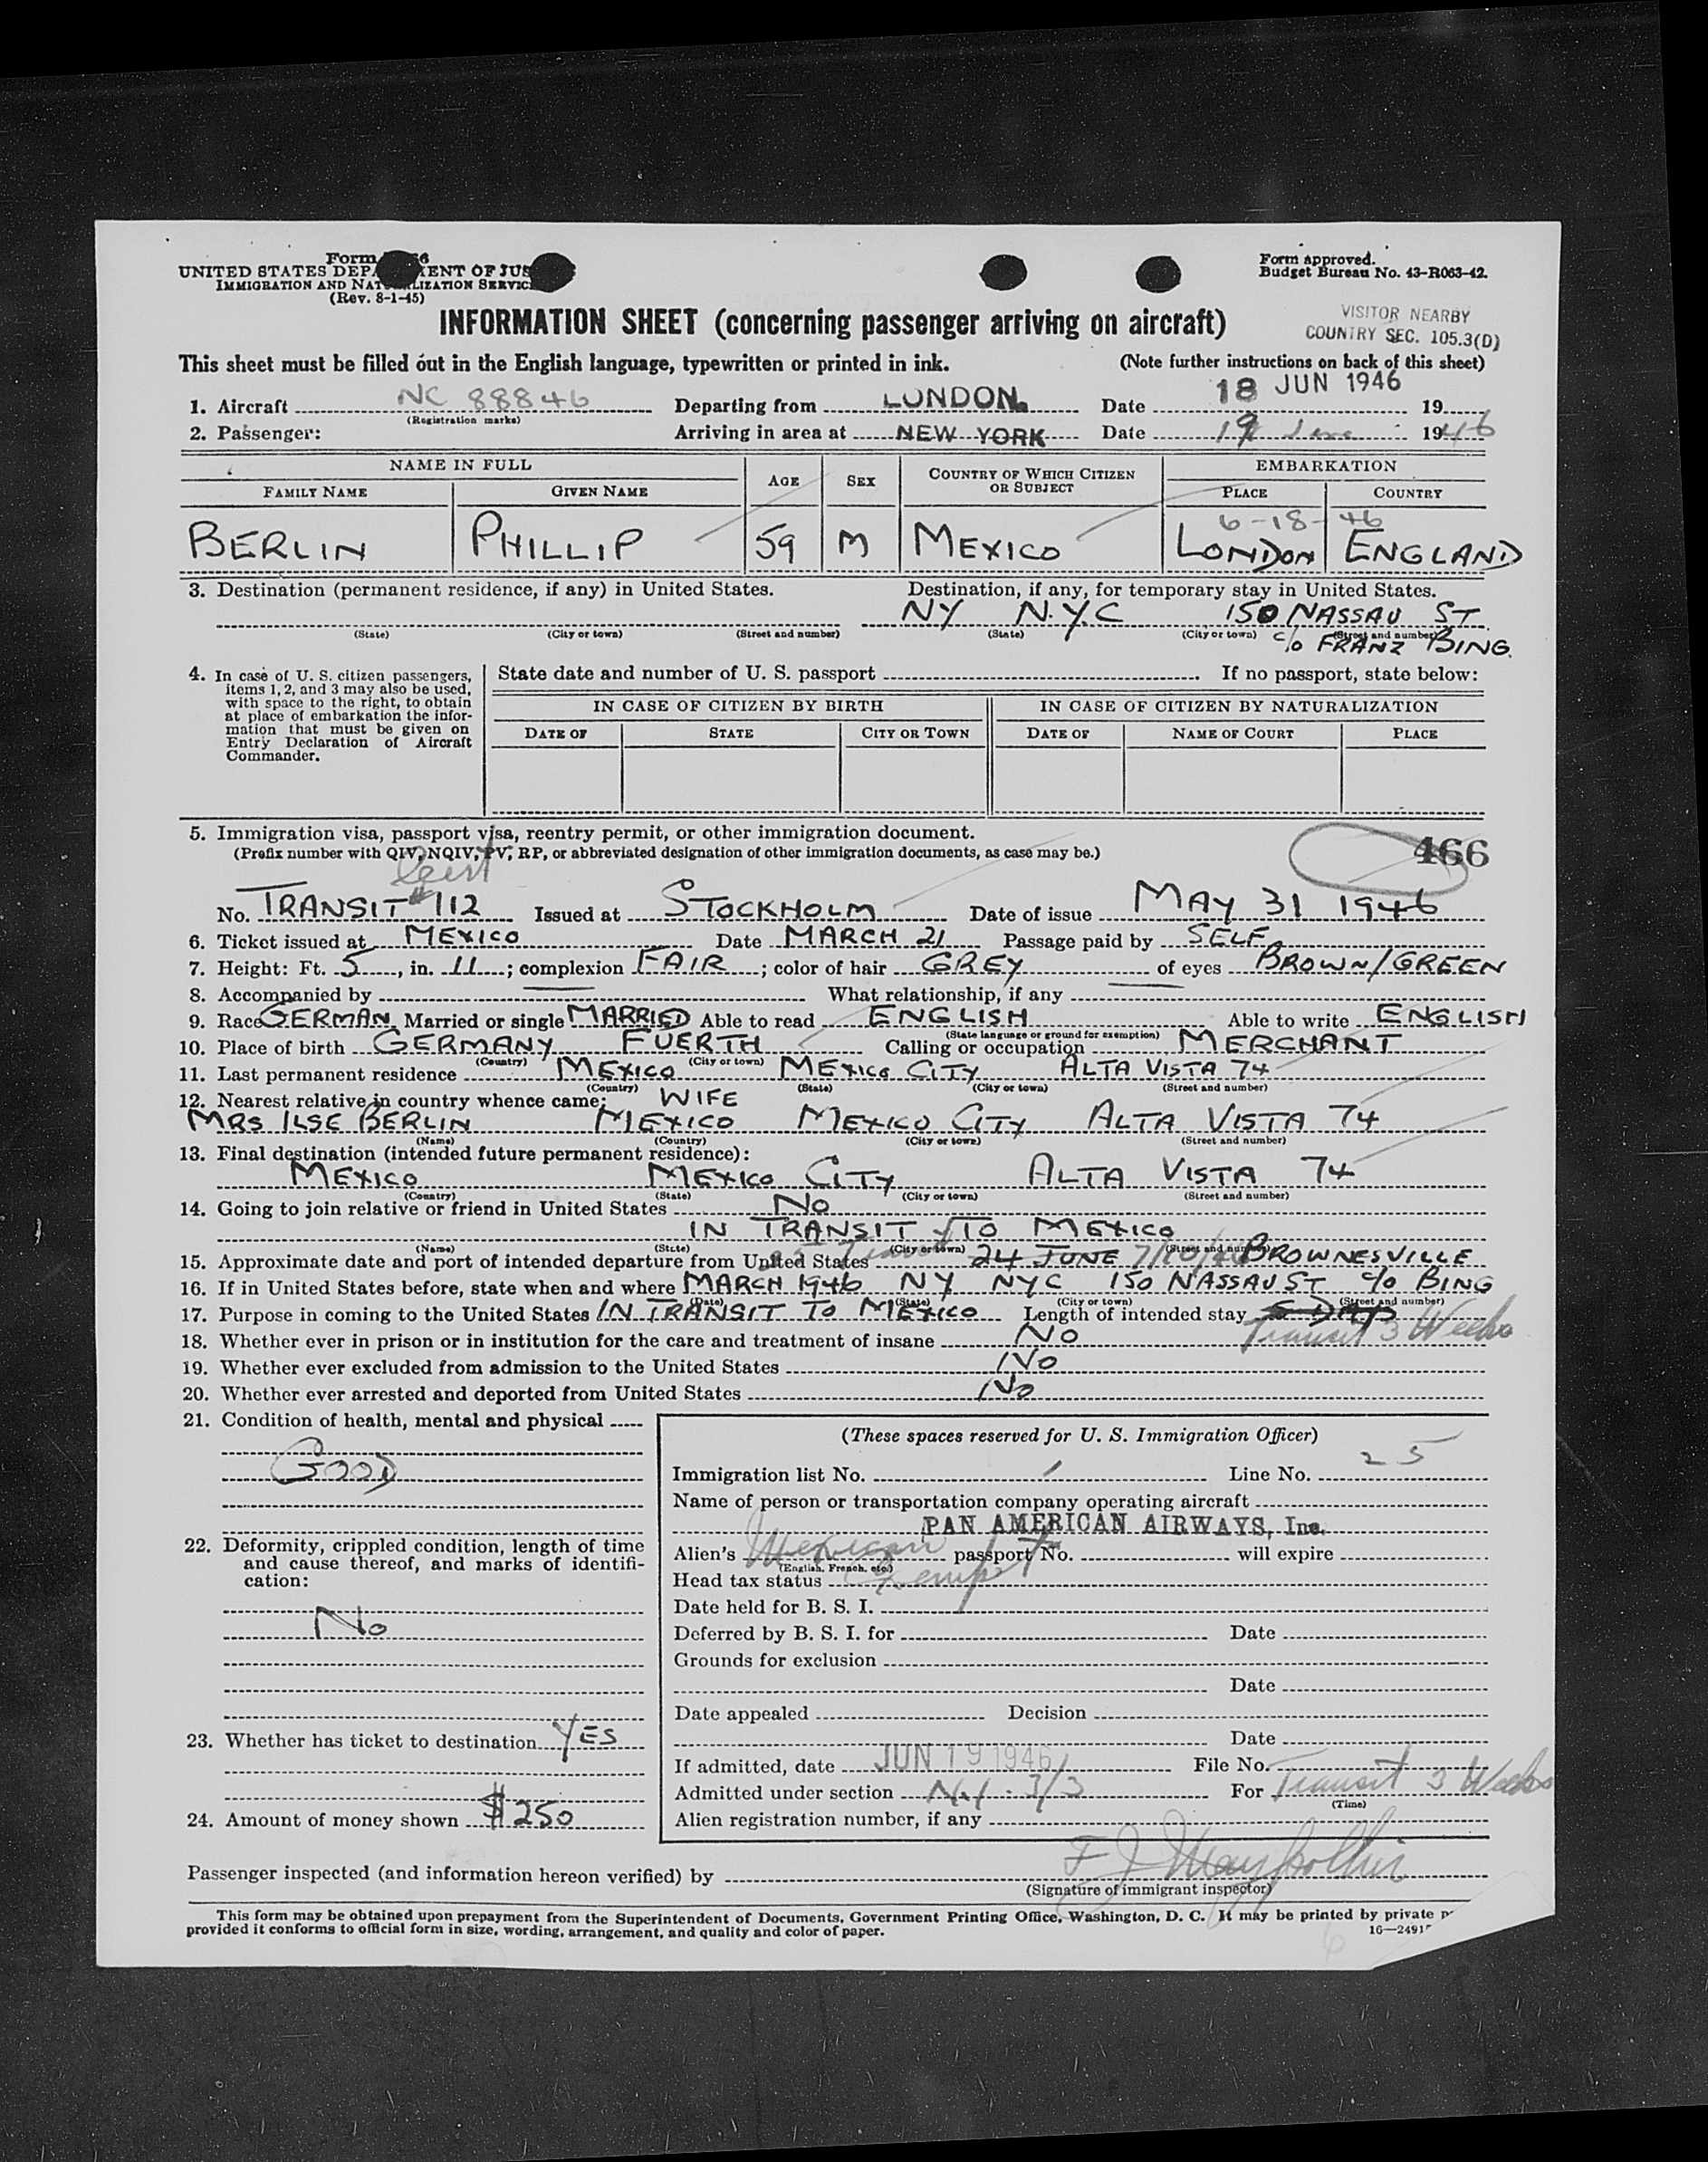 Form
UNITED STATES DEPA ENT OF JUS
IMMIGRATION AND NAT LIZATION SERVIC
(Rev. 8-1-45)
Form approved.
Budget Bureau No. 43-R063-42.
INFORMATION SHEET (concerning passenger arriving on aircraft)
VISITOR NEARBY
COUNTRY SEC. 105.3(D)
This sheet must be filled out in the English language, typewritten or printed in ink.
(Note further instructions on back of this sheet)
1. Aircraft NC 88846 Departing from LONDON. Date 18 JUN 1946 19
(Registration marks)
2. Passenger: Arriving in area at NEW YORK Date 19 June 1946
NAME IN FULL AGE SEX COUNTRY OF WHICH CITIZEN OR SUBJECT EMBARKATION
FAMILY NAME GIVEN NAME PLACE COUNTRY
6-18-46
BERLIN PHILLIP 59 M MEXICO LONDON ENGLAND
3. Destination (permanent residence, if any) in United States. Destination, if any, for temporary stay in United States.
NY N.Y.C 150 NASSAU ST
(State) (City or town) (Street and number) (State) (City or town) (Street and number)
c/o FRANZ BING.
4. In case of U. S. citizen passengers, items 1, 2, and 3 may also be used, with space to the right, to obtain at place of embarkation the information that must be given on Entry Declaration of Aircraft Commander.
State date and number of U. S. passport If no passport, state below:
IN CASE OF CITIZEN BY BIRTH IN CASE OF CITIZEN BY NATURALIZATION
DATE OF STATE CITY OR TOWN DATE OF NAME OF COURT PLACE
5. Immigration visa, passport visa, reentry permit, or other immigration document.
(Prefix number with QIV, NQIV, PV, RP, or abbreviated designation of other immigration documents, as case may be.)
466
Cert
No. TRANSIT #112 Issued at STOCKHOLM Date of issue MAY 31 1946
6. Ticket issued at MEXICO Date MARCH 21 Passage paid by SELF
7. Height: Ft. 5, in. 11; complexion FAIR; color of hair GREY of eyes BROWN/GREEN
8. Accompanied by What relationship, if any
9. Race GERMAN Married or single MARRIED Able to read ENGLISH Able to write ENGLISH
(State language or ground for exemption)
10. Place of birth GERMANY FUERTH Calling or occupation MERCHANT
(Country) (City or town)
11. Last permanent residence MEXICO MEXICO CITY ALTA VISTA 74
(Country) (State) (City or town) (Street and number)
12. Nearest relative in country whence came: WIFE
MRS ILSE BERLIN MEXICO MEXICO CITY ALTA VISTA 74
(Name) (Country) (City or town) (Street and number)
13. Final destination (intended future permanent residence):
MEXICO MEXICO CITY ALTA VISTA 74
(Country) (State) (City or town) (Street and number)
14. Going to join relative or friend in United States NO
IN TRANSIT TO MEXICO
(Name) (State) (City or town) (Street and number)
15. Approximate date and port of intended departure from United States 24 JUNE 7/10/46 BROWNESVILLE
16. If in United States before, state when and where MARCH 1946 NY NYC 150 NASSAU ST c/o BING
(Date) (State) (City or town) (Street and number)
17. Purpose in coming to the United States IN TRANSIT TO MEXICO Length of intended stay 5 DAYS
Transit 3 Weeks
18. Whether ever in prison or in institution for the care and treatment of insane NO
19. Whether ever excluded from admission to the United States NO
20. Whether ever arrested and deported from United States NO
21. Condition of health, mental and physical
GOOD
22. Deformity, crippled condition, length of time and cause thereof, and marks of identification:
NO
23. Whether has ticket to destination YES
24. Amount of money shown $250
(These spaces reserved for U. S. Immigration Officer)
Immigration list No. / Line No. 25
Name of person or transportation company operating aircraft
PAN AMERICAN AIRWAYS, Inc.
Alien's Mexican passport No. will expire
(English, French, etc.)
Head tax status Exempt
Date held for B. S. I.
Deferred by B. S. I. for Date
Grounds for exclusion
Date
Date appealed Decision
Date
If admitted, date JUN 19 1946 File No.
Admitted under section 3/3 For Transit 3 Weeks
(Time)
Alien registration number, if any
Passenger inspected (and information hereon verified) by
(Signature of immigrant inspector)
This form may be obtained upon prepayment from the Superintendent of Documents, Government Printing Office, Washington, D. C. It may be printed by private
provided it conforms to official form in size, wording, arrangement, and quality and color of paper.
16—2491